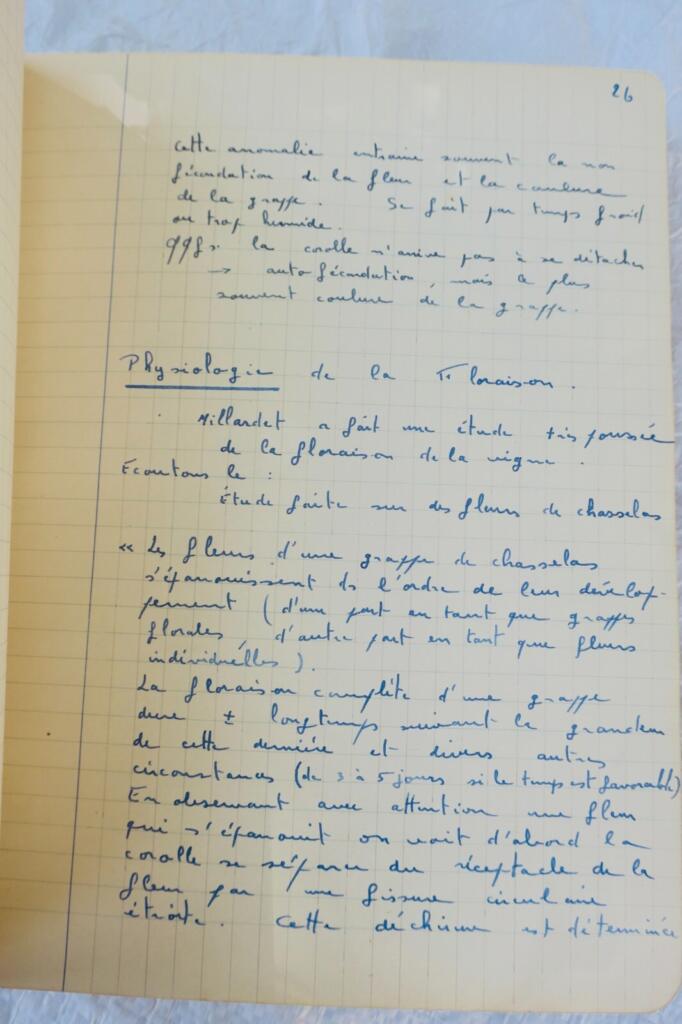 26
cette anomalie entraine souvent la non
fécondation de la fleur et la coulure
de la grappe. Se fait par temps froid
ou trop humide.
qqfs la corolle n'arrive pas à se détacher
→ autofécondation, mais le plus
souvent coulure de la grappe.
Physiologie de la Floraison.
Millardet a fait une étude très poussée
de la floraison de la vigne.
Écoutons le :
Étude faite sur des fleurs de chasselas
« Les fleurs d'une grappe de chasselas
s'épanouissent ds l'ordre de leur dévelop-
pement (d'une part en tant que grappes
florales, d'autre part en tant que fleurs
individuelles).
La floraison complète d'une grappe
dure ± longtemps suivant la grandeur
de cette dernière et divers autres
circonstances (de 3 à 5 jours si le temps est favorable)
En observant avec attention une fleur
qui s'épanouit on voit d'abord la
corolle se séparer du réceptacle de la
fleur par une fissure circulaire
étroite. Cette déchirure est déterminée